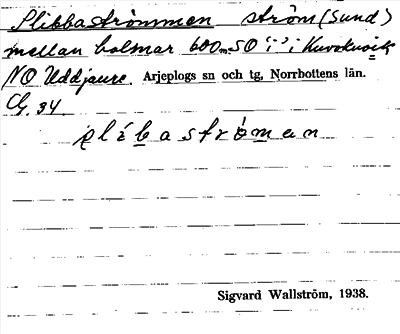 Slibbaströmmen ström (Sund)
mellan holmar 600 m SO "i" i Kuvokvoik
NO Uddjaure. Arjeplogs sn och tg, Norrbottens län.
Cg. 34
slibaströman
Sigvard Wallström, 1938.